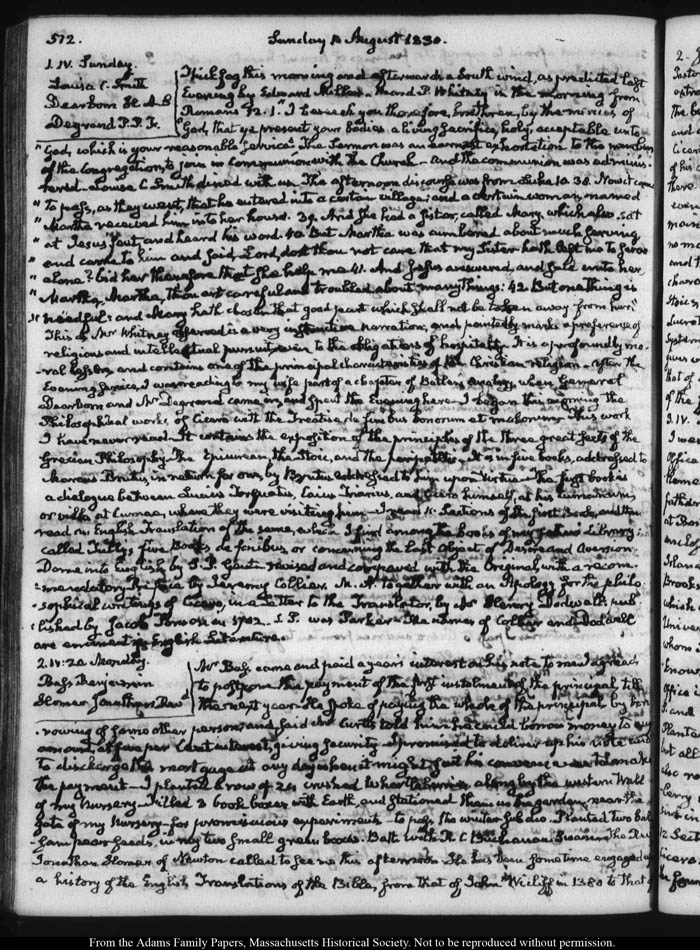 572.
Sunday 1 August 1830.
1. IV. Sunday.
Louisa C. Smith
Dearborn H. A. S
Degrand P. P. F.
Thick fog this morning and afterwards a South wind, as predicted last
Evening by Edward Miller. Heard P. Whitney in the morning from
Romans 12. 1. "I beseech you therefore, brethren, by the mercies of
"God, that ye present your bodies a living sacrifice, holy, acceptable unto
"God, which is your reasonable service." The Sermon was an earnest exhortation to the members
of the congregation, to join in communion with the Church – and the communion was adminis-
tered. Louisa C. Smith dined with us. The afternoon discourse was from Luke 10. 38. Now it came
"to pass, as they went, that he entered into a certain village; and a certain woman, named
"Martha received him into her house. 39. And she had a sister, called Mary, which also sat
"at Jesus' feet, and heard his word. 40. But Martha was cumbered about much serving,
"and came to him and said, Lord, dost thou not care that my Sister hath left me to serve
"alone? bid her therefore that she help me. 41. And Jesus answered, and said unto her,
"Martha, Martha, thou art careful and troubled about many things: 42. But one thing is
"needful: and Mary hath chosen that good part which shall not be taken away from her."
This Mr Whitney observed is a very instructive narration, and pointedly marks a preference of
religious and intellectual pursuits, even to the obligations of hospitality. It is a profoundly mo-
ral lesson, and contains one of the principal characteristics of the Christian religion. After the
Evening service, I was reading to my wife part of a chapter of Butler's Analogy, when General
Dearborn and Mr Degrand came in, and spent the Evening here. I began this morning the
Philosophical works of Cicero with the Treatise de finibus bonorum et malorum. This work
I have never read. It contains the exposition of the principles of the three great sects of the
Grecian Philosophy. The Epicurean, the Stoic, and the peripatetic. It is in five books, addressed to
Marcus Brutus, in return for one, by Brutus addressed to him upon Virtue. The first book is
a dialogue between Lucius Torquatus, Caius Triarius, and Cicero himself, at his
or villa at Cumae, where they were visiting him. I read 11. Sections of the first Book, and then
read an English Translation of the same, which I find among the books of my father's Library;
called Tully's five Books de finibus, or concerning the last Object of Desire and Aversion.
Done into English by S. P. Gent. revised and compared with the Original, with a recom-
mendatory Preface by Jeremy Collier. M. A. together with an Apology for the philo-
sophical writings of Cicero, in a Letter to the Translator, by Mr Henry Dodwell: pub-
lished by Jacob Tonson in 1702. S. P. was Parker. The names of Collier and Dodwell
are eminent in English Literature.
2. IV: 20 Monday.
Bass Benjamin
Homer Jonathan Revd
Mr Bass came and paid a year's interest on his note to me. I agreed
to postpone the payment of the first instalment of the principal till
the next year. He spoke of paying the whole of the principal by bor-
rowing of some other person; and said Mr Curtis told him he could borrow money to any
amount at five per Cent interest, giving security. I promised to deliver up his note and
to discharge the mortgage at any day when it might suit his convenience to make
the payment. I planted a row of 24 crushed whortleberries along by the western Wall
of my Nursery. Filled 3 book boxes with Earth, and stationed them in the garden, near the
gate of my Nursery for promiscuous experiments to pass the winter sub dio. Planted two
pear seeds, in my two small green boxes. Bath with A. C. Buchanan. The Revd
Jonathan Homer of Newton called to see me this afternoon. He has been some time engaged
a history of the English Translations of the Bible, from that of John Wicliff in 1380 to that
From the Adams Family Papers, Massachusetts Historical Society. Not to be reproduced without permission.